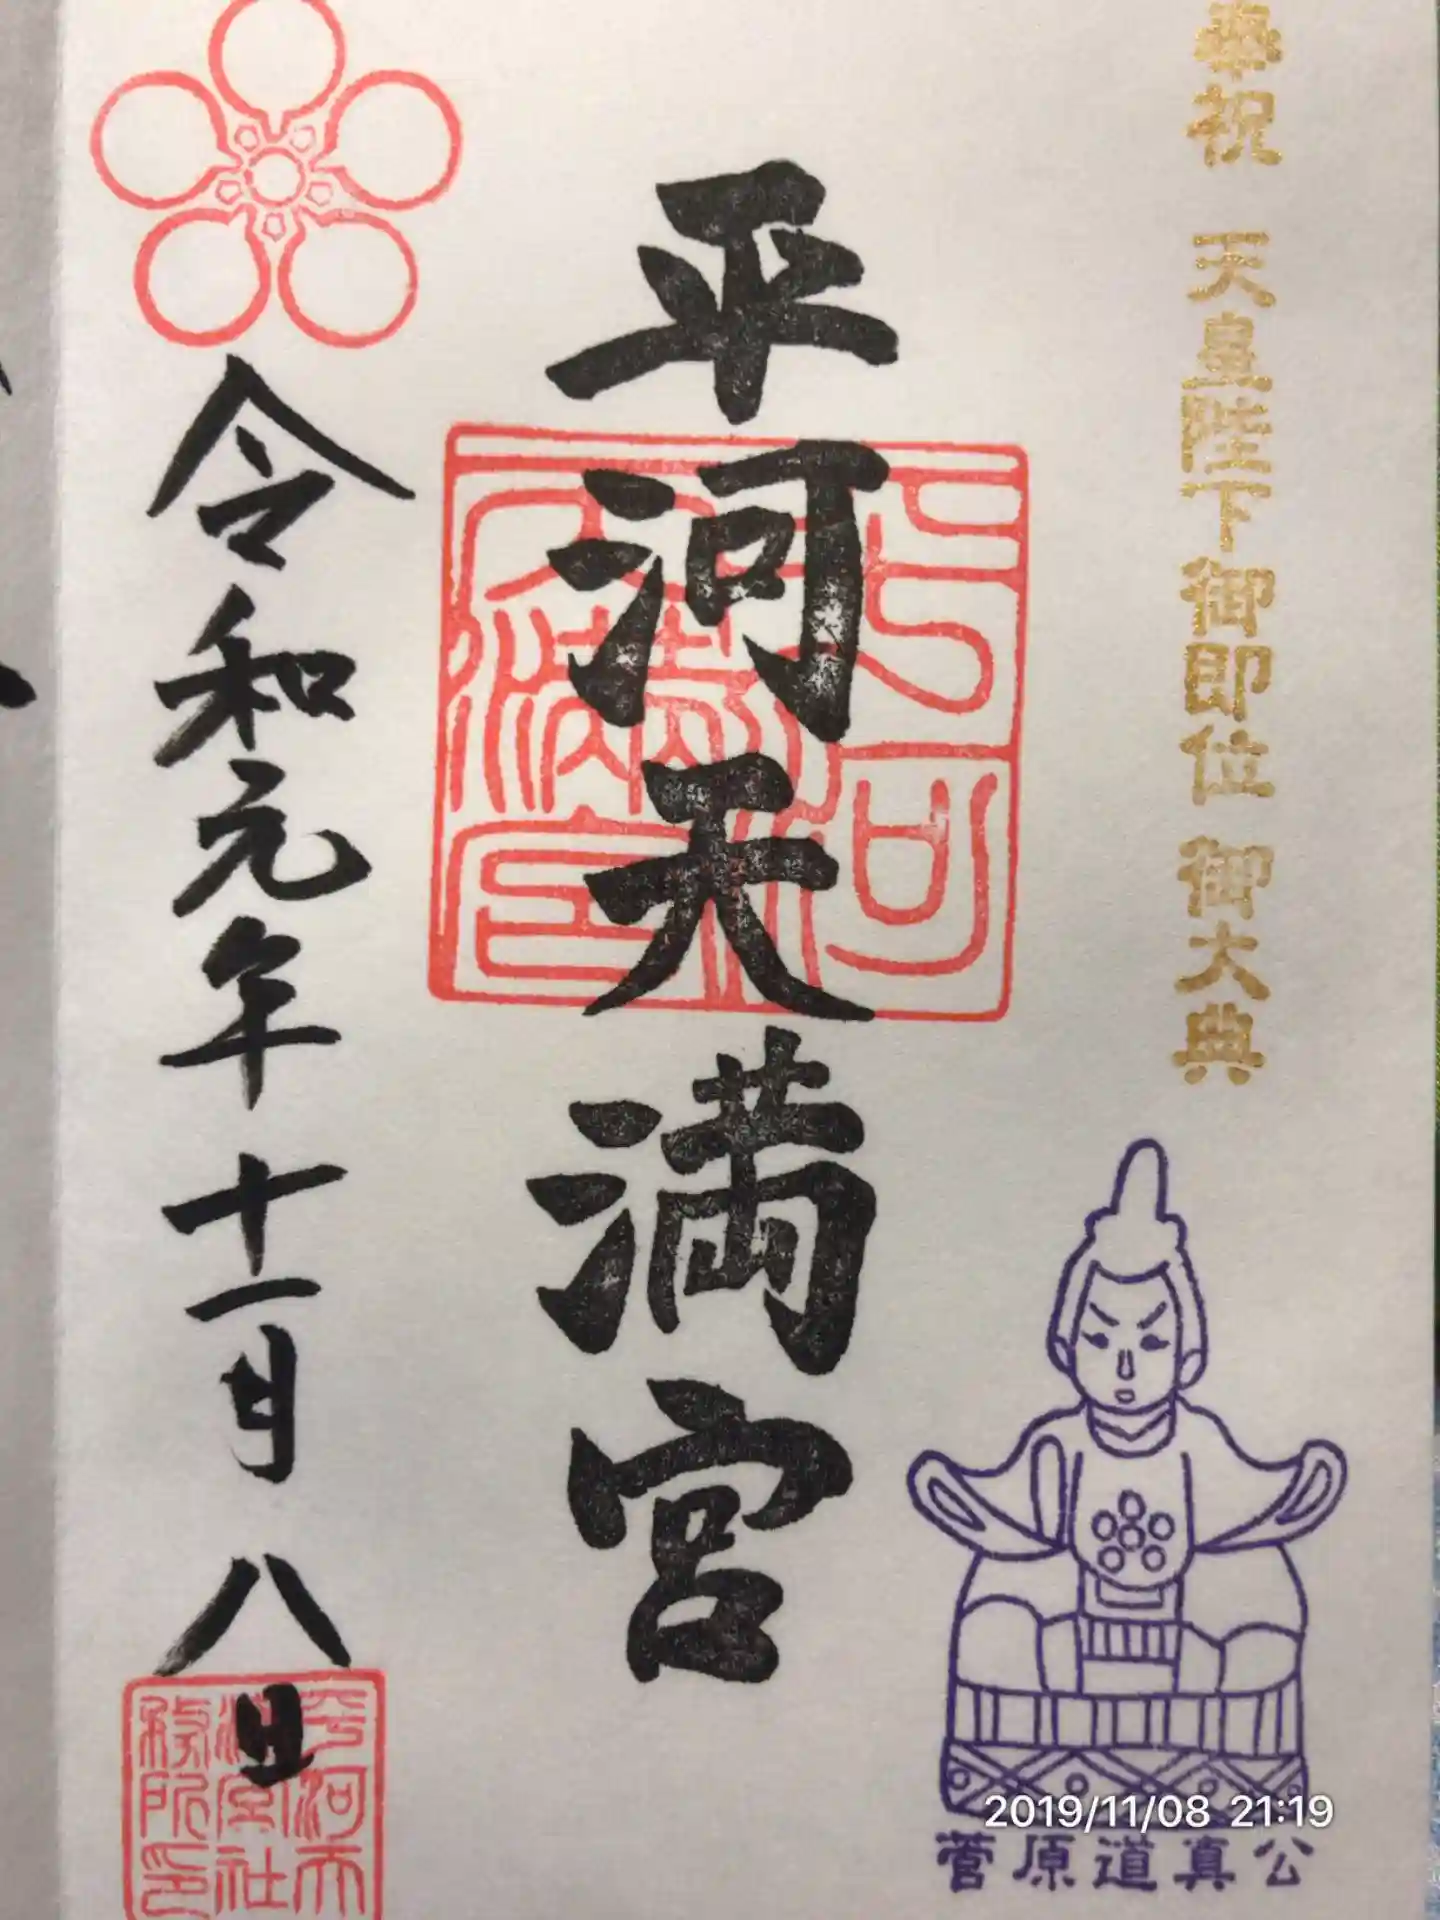 奉祝 天皇陛下御即位 御大典
平河天満宮
令和元年十一月八日
平河天
満宮社
務所印
菅原道真公
2019/11/08 21:19